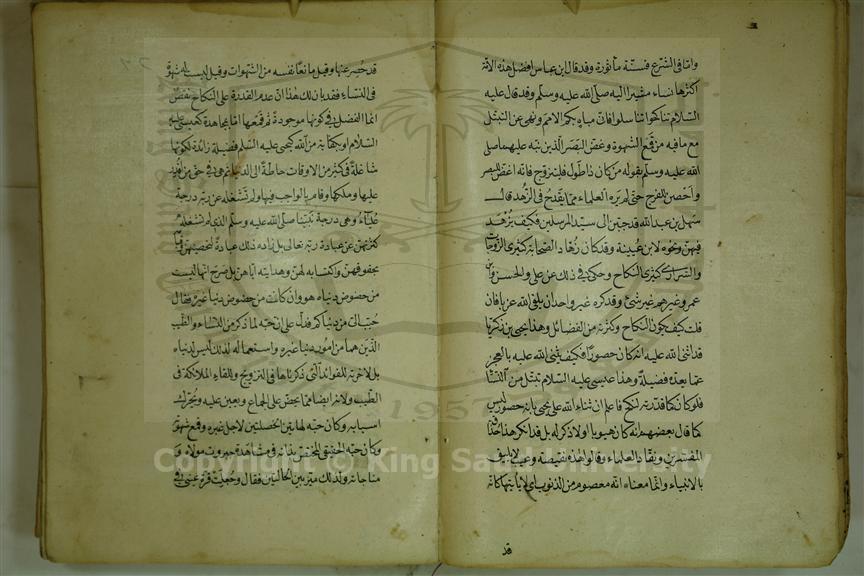 واما فى الشرع فسنة مأثورة وقد قال ابن عباس افضل هذه الامة
اكثرها نساء مشيرا اليه صلى الله عليه وسلم وقد قال عليه
السلام تناكحوا تناسلوا فانى مباه بكم الامم ونهى عن التبتل
مع ما فيه من قمع الشهوة وغض البصر الذين نبه عليهما صلى
الله عليه وسلم بقوله من كان ذا طول فليتزوج فانه اغض للبصر
واحصن للفرج حتى لم يره العلماء مما يقدح فى الزهد قال
سهل بن عبد الله قد حببن الى سيد المرسلين فكيف يزهد
فيهن ونحوه لابن عيينة وقد كان زهاد الصحابة كثيرى الزوجات
والسرارى كثيرى النكاح وحكى فى ذلك عن على والحسن وابن
عمر وغيرهم غير شئ وقد كره غير واحد ان يلقى الله عزبا فان
قلت كيف يكون النكاح وكثرته من الفضائل وهذا يحيى بن زكريا
قد اثنى الله عليه انه كان حصورا فكيف يثنى الله عليه بالعجز
عما تعده فضيلة وهذا عيسى عليه السلام تبتل من النساء
فلو كان كما قررته لنكح فاعلم ان ثناء الله على يحيى بانه حصور ليس
كما قال بعضهم انه كان هيوبا او لا ذكر له بل قد انكر هذا حذاق
المفسرين ونقاد العلماء وقالوا هذه نقيصة وعيب لا يليق
بالانبياء وانما معناه انه معصوم من الذنوب اى لا يأتيها كانه
قد
قد حصر عنها وقيل مانعا نفسه من الشهوات وقيل ليست له شهوة
فى النساء فقد بان لك هذا ان عدم القدرة على النكاح نقص
انما الفضل فى كونها موجودة ثم قمعها اما بمجاهدة كعيسى عليه
السلام او بكفاية من الله كيحيى عليه السلم فضيلة زائدة لكونها
شاغلة فى كثير من الاوقات حاطة الى الدنيا ثم هى فى حق من اقدر
عليها وملكها وقام بالواجب فيها ولم تشغله عن ربه درجة
علياء وهى درجة نبينا صلى الله عليه وسلم الذى لم تشغله
كثرتهن عن عبادة ربه تعالى بل زاده ذلك عبادة لتحصينهن وقيامه
بحقوقهن واكتسابه لهن وهدايته اياهن بل صرح انها ليست
من حضوض دنياه هو وان كانت من حضوض دنيا غيره فقال
حبب الى من دنياكم فدل على ان حبه لما ذكر من النساء والطيب
الذين هما من امور دنيا غيره واستعماله لذلك ليس لدنياه
بل لاخرته للفوائد التى ذكرناها فى التزويج وللقاء الملائكة فى
الطيب ولانه ايضا مما يحض على الجماع ويعين عليه ويحرك
اسبابه وكان حبه لهاتين الخصلتين لاجل غيره وقمع شهوته
وكان حبه الحقيقى المختص بذاته فى مشاهدة جبروت مولاه و
مناجاته ولذلك ميز بين الحالتين فقال وجعلت قرة عينى فى
Copyright © King Saud University
1957